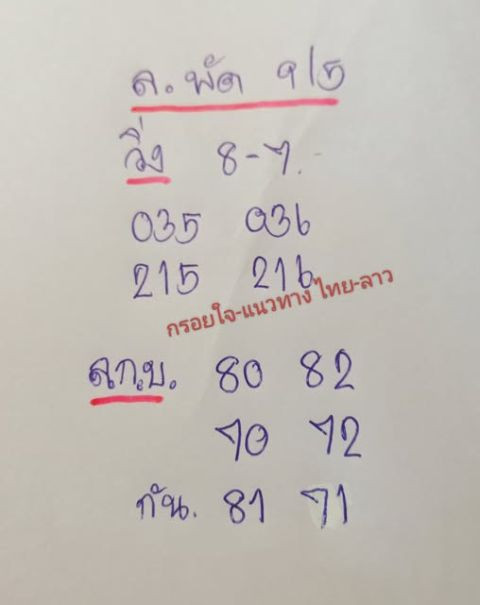 ล. พัด 9/5
วิ่ง 8-7.-
035 036
215 216
กรอยใจ-แนวทาง ไทย-ลาว
ลก.บ. 80 82
70 72
กัน. 81 71